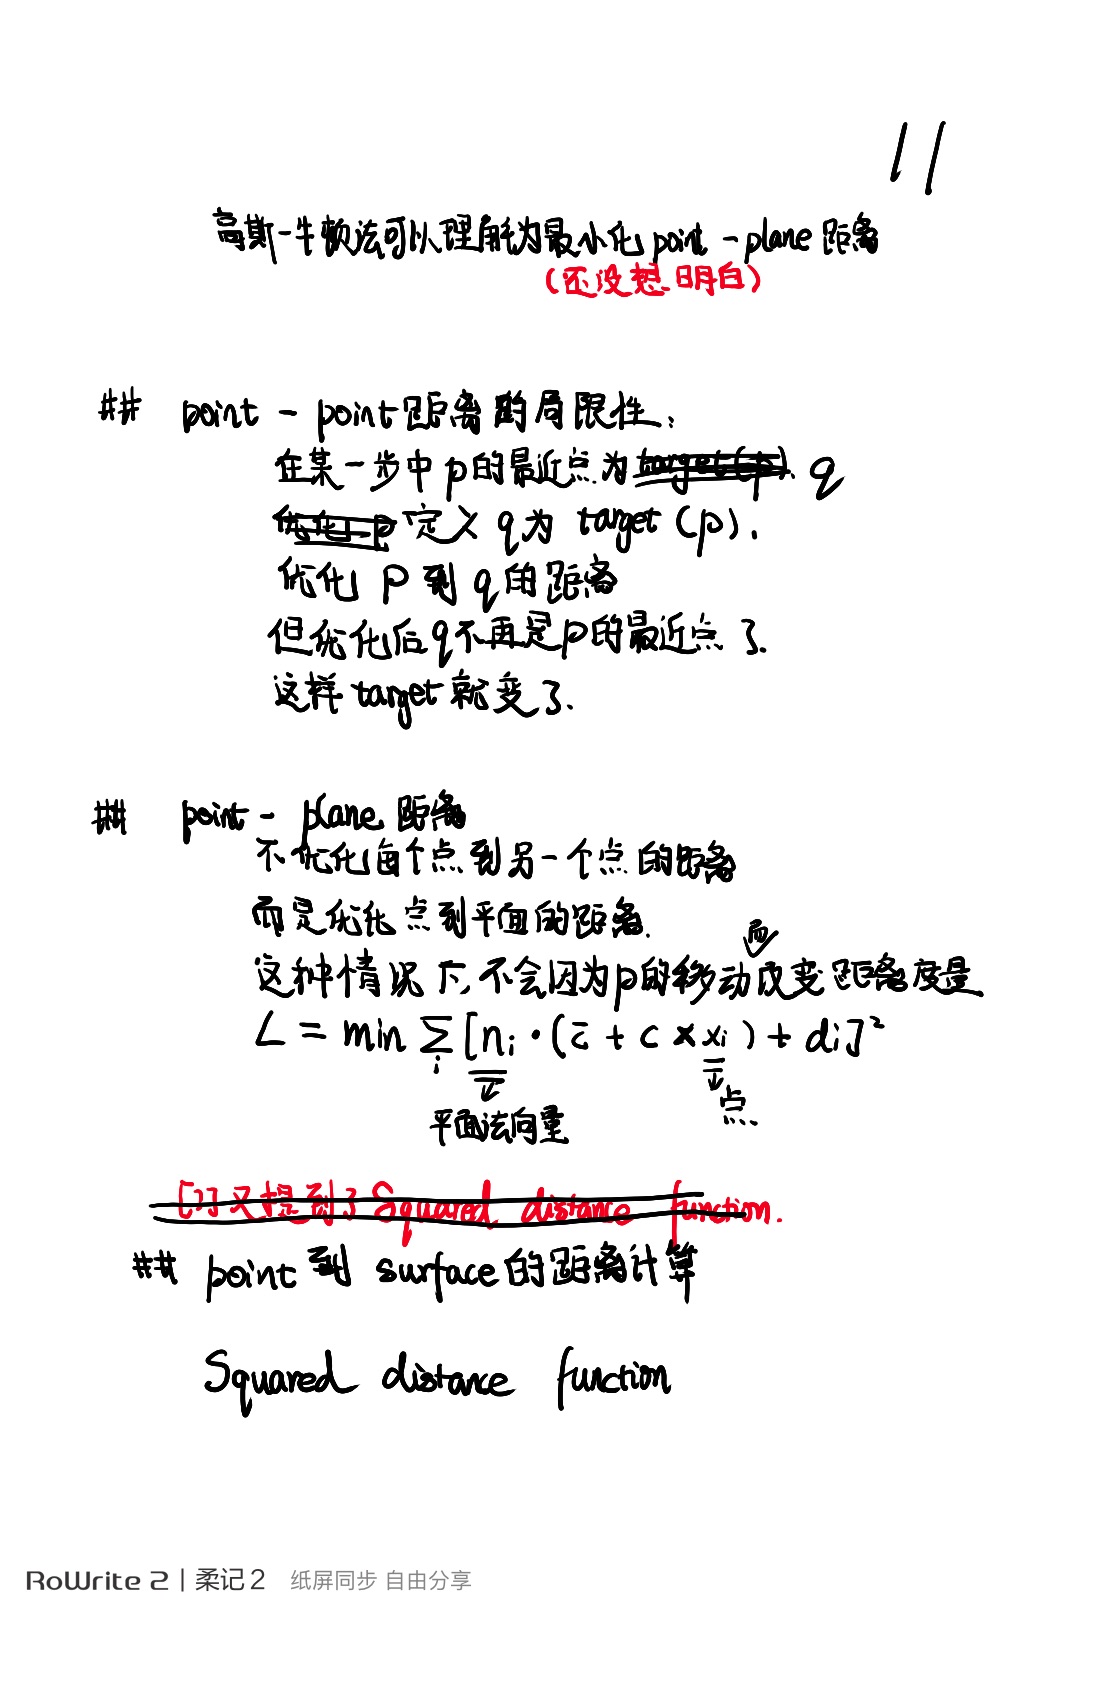 11
高斯-牛顿法可以理解为最小化 point - plane 距离
(还没想明白)
## point - point 距离的局限性:
在某一步中 p的最近点为 target(p). q
优化 p 定义 q为 target (p).
优化 p 到 q 的 距离
但优化后 q不再是p的最近点了.
这样 target 就变了.
## point - plane 距离
不优化每个点到另一个点的距离
而是优化点到平面的距离.
而
这种情况下,不会因为p的移动改变距离度量
L = min ∑ᵢ [nᵢ · (c̄ + c × xᵢ) + dᵢ]²
点
平面法向量
[7] 又提到了 Squared distance function.
## point 到 surface 的距离计算
Squared distance function
RoWrite 2 | 柔记 2 纸屏同步 自由分享